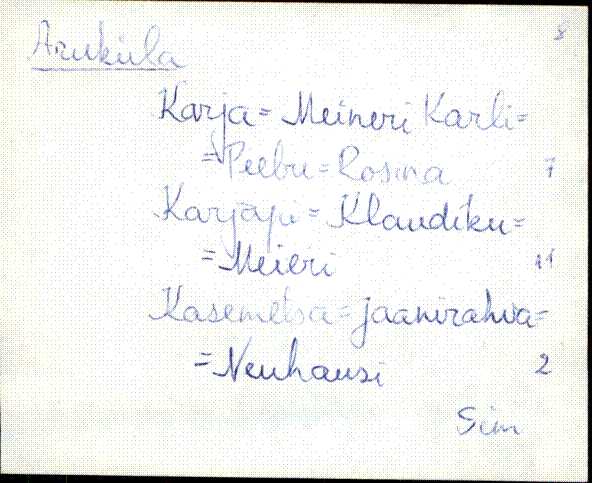 Aruküla 8
Karja = Meineri Karli =
= Peebu = Rosina 7
Karjapi = Klaudiku =
= Meieri 11
Kasemetsa = Jaanirahva =
= Neuhausi 2
Sim